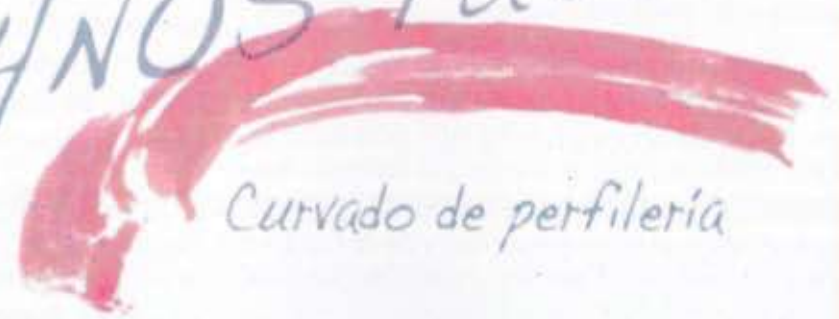 HNOS
Curvado de perfilería